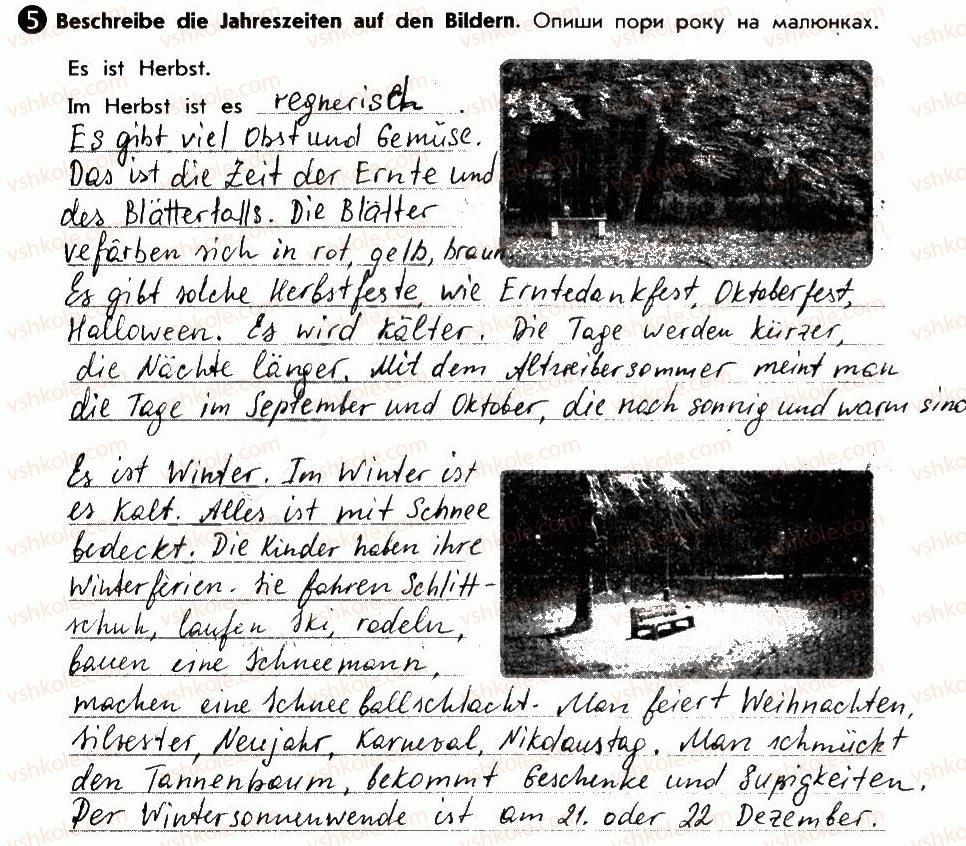 5 Beschreibe die Jahreszeiten auf den Bildern. Опиши пори року на малюнках.
Es ist Herbst.
Im Herbst ist es regnerisch.
Es gibt viel Obst und Gemüse.
Das ist die Zeit der Ernte und
des Blätterfalls. Die Blätter
vefärben sich in rot, gelb, braun.
Es gibt solche Herbstfeste, wie Erntedankfest, Oktoberfest,
Halloween. Es wird kälter. Die Tage werden kürzer,
die Nächte länger. Mit dem Altweibersommer meint man
die Tage im September und Oktober, die noch sonnig und warm sind
Es ist Winter. Im Winter ist
es kalt. Alles ist mit Schnee
bedeckt. Die Kinder haben ihre
Winterferien. Sie fahren Schlitt-
schuh, laufen Ski, rodeln,
bauen eine Schneemann,
machen eine Schneeballschlacht. Man feiert Weihnachten,
Silvester, Neujahr, Karneval, Nikolaustag. Man schmückt
den Tannenbaum, bekommt Geschenke und Süßigkeiten.
Der Wintersonnenwende ist am 21. oder 22 Dezember.
vshkole.com